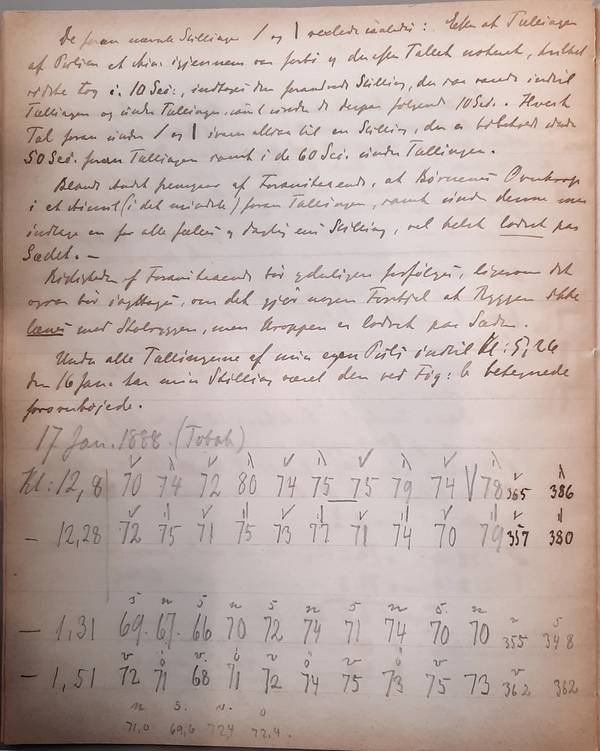 De foran nævnte Stillinger / og | vexlede saaledes: Efter at Tællingen
af Pulsen et Min: igjennem var forbi og derefter Tallet noteret, hvilket
vidste tog c. 10 Sec., indtoges den forandrede Stilling, der var varede indtil
Tællingen og under Tællingen, samt under de derpaa følgende 10 Sec. Hvert
Tal foran under / og | svarer altsaa til en Stilling, der er bibeholdt under
50 Sec. foran Tællingen samt i de 60 Sec. under Tællingen.
Blandt Andet af Foranstaaende, at Overkrop
i et Minut (i det mindste) foran Tællingen, samt under denne maa
indtage en for alle fælles og daglig ens Stilling, vel helst lodret paa
Sædet. —
Rigtigheden af Foranstaaende bør yderligere forfølges, ligesom det
ogsaa bør iagttages, om det gjør nogen Forskjel at Ryggen ikke
lænes mod Stoleryggen, men Kroppen er lodret paa Sædet.
Under alle Tællingerne af min egen Puls indtil Kl: 5,26
den 16 Jan. har min Stilling været den ved Fig: b betegnede
foroverbøjede.
17 Jan. 1888. (Tobak)
v ʌ v ʌ v ʌ v ʌ v ʌ v ʌ
Kl: 12,8 70 74 72 80 74 75 75 79 74 78 365 386
v || v || v || v || v || v ||
— 12,28 72 75 71 75 73 77 71 74 70 79 357 380
s n s n s n s n s n n s
— 1,31 69. 67. 66 70 72 74 71 74 70 70 355 348
v o v. o v o v o v v
— 1,51 72 71 68 71 72 74 75 73 75 73 362 362
n s. v. o
71,0 69,6 72,4 72,4.